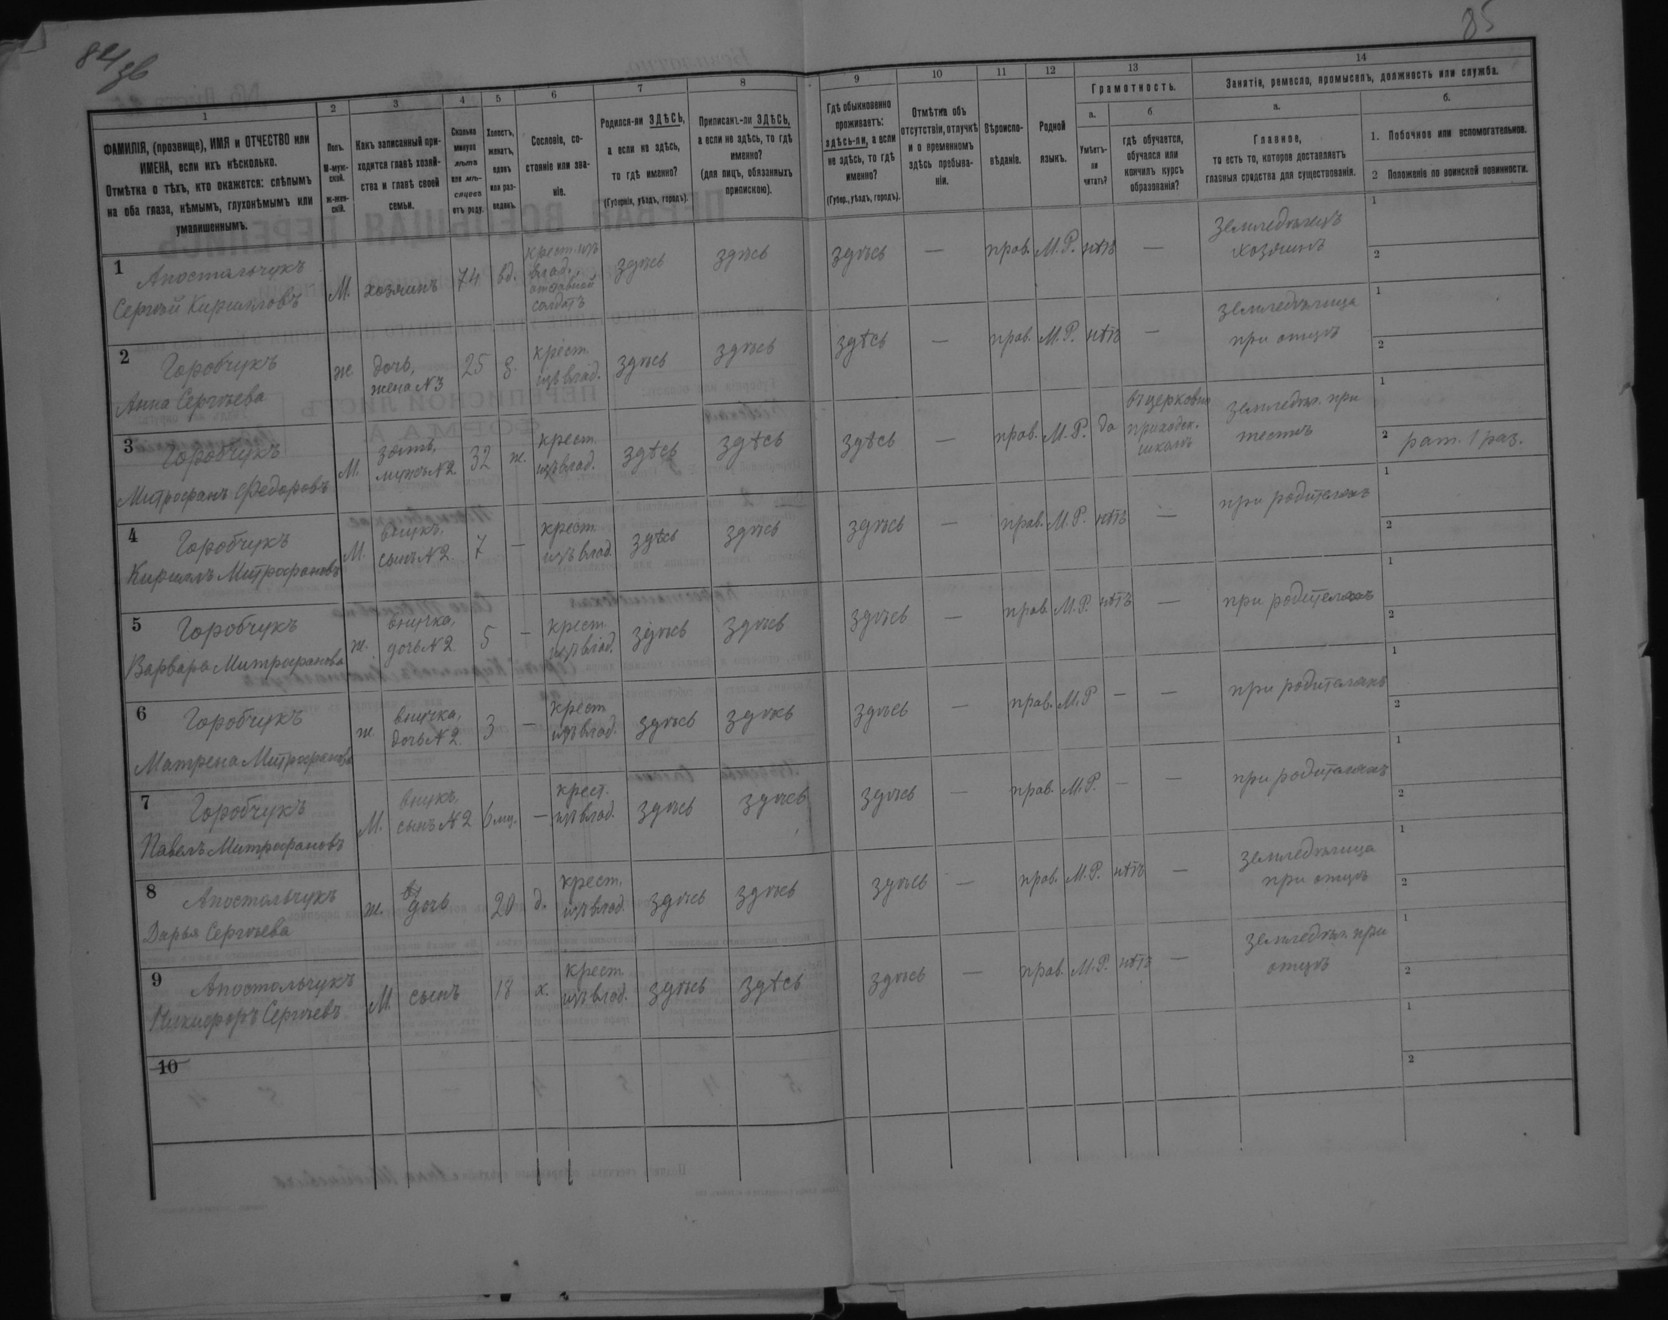 84/зв
85
1
2
3
4
5
6
7
8
9
10
11
12
13
14
ФАМИЛІЯ, (прозвище), ИМЯ и ОТЧЕСТВО или
ИМЕНА, если ихъ нѣсколько.
Отмѣтка о тѣхъ, кто окажется: слѣпымъ
на оба глаза, нѣмымъ, глухонѣмымъ или
умалишеннымъ.
Полъ.
М-муж-
ской.
Ж-жен-
скій.
Какъ записанный при-
ходится главѣ хозяй-
ства и главѣ своей
семьи.
Сколько
минуло
лѣтъ
или мѣ-
сяцевъ
отъ роду.
Холостъ,
женатъ,
вдовъ
или раз-
веденъ.
Сословіе, со-
стояніе или зва-
ніе.
Родился-ли ЗДѢСЬ,
а если не здѣсь,
то гдѣ именно?
(Губернія, уѣздъ, городъ).
Приписанъ-ли ЗДѢСЬ,
а если не здѣсь, то гдѣ
именно?
(для лицъ, обязанныхъ
припискою).
Гдѣ обыкновенно
проживаетъ:
здѣсь-ли, а если
не здѣсь, то гдѣ
именно?
(Губер., уѣздъ, городъ).
Отмѣтка объ
отсутствіи, отлучкѣ
и о временномъ
здѣсь пребыва-
ніи.
Вѣроиспо-
вѣданіе.
Родной
языкъ.
Грамотность.
а.
Умѣетъ-
ли
читать?
б
гдѣ обучается,
обучался или
кончилъ курсъ
образованія?
Занятіе, ремесло, промыселъ, должность или служба.
а.
Главное,
то есть то, которое доставляетъ
главныя средства для существованія.
б.
1. Побочное или вспомогательное.
2 Положеніе по воинской повинности.
1 Апостольчукъ
Сергѣй Кириловъ
М. хозяинъ 74 вд.
крест. изъ
влад.
отставной
солдатъ
здѣсь здѣсь здѣсь — прав. М.Р. нѣтъ —
Земледѣлецъ
хозяинъ
1
2
2 Горобчукъ
Анна Сергѣева
ж дочь,
жена N3
25 з.
крест.
изъ влад.
здѣсь здѣсь здѣсь — прав. М.Р. нѣтъ —
земледѣлица
при отцѣ
1
2
3 Горобчукъ
Митрофанъ Федоровъ
М. зять,
мужъ N2
32 ж.
крест.
изъ влад.
здѣсь здѣсь здѣсь — прав. М.Р. да
въ церковно
приходск.
школѣ
земледѣл. при
тестѣ
1
2 рат. 1 раз.
4 Горобчукъ
Кирилъ Митрофановъ
М. внукъ,
сынъ N2
7 —
крест.
изъ влад
здѣсь здѣсь здѣсь — прав. М.Р. нѣтъ —
при родителяхъ
1
2
5 Горобчукъ
Варвара Митрофанова
ж. внучка,
дочь N2
5 —
крест.
изъ влад.
здѣсь здѣсь здѣсь — прав. М.Р. нѣтъ —
при родителяхъ
1
2
6 Горобчукъ
Матрена Митрофанова
ж. внучка,
дочь N2
3 —
крест
изъ влад.
здѣсь здѣсь здѣсь — прав. М.Р — —
при родителяхъ
1
2
7 Горобчукъ
Павелъ Митрофановъ
М. внукъ,
сынъ N2
6 мц. —
крест.
изъ влад.
здѣсь здѣсь здѣсь — прав. М.Р. — —
при родителяхъ
1
2
8 Апостольчукъ
Дарья Сергѣева
ж. дочь
20 д.
крест.
изъ влад.
здѣсь здѣсь здѣсь — прав. М.Р. нѣтъ —
земледѣлица
при отцѣ
1
2
9 Апостольчукъ
Никифоръ Сергѣевъ
М. сынъ
18 х.
крест
изъ влад.
здѣсь здѣсь здѣсь — прав. М.Р. нѣтъ —
земледѣл. при
отцѣ
1
2
10
1
2